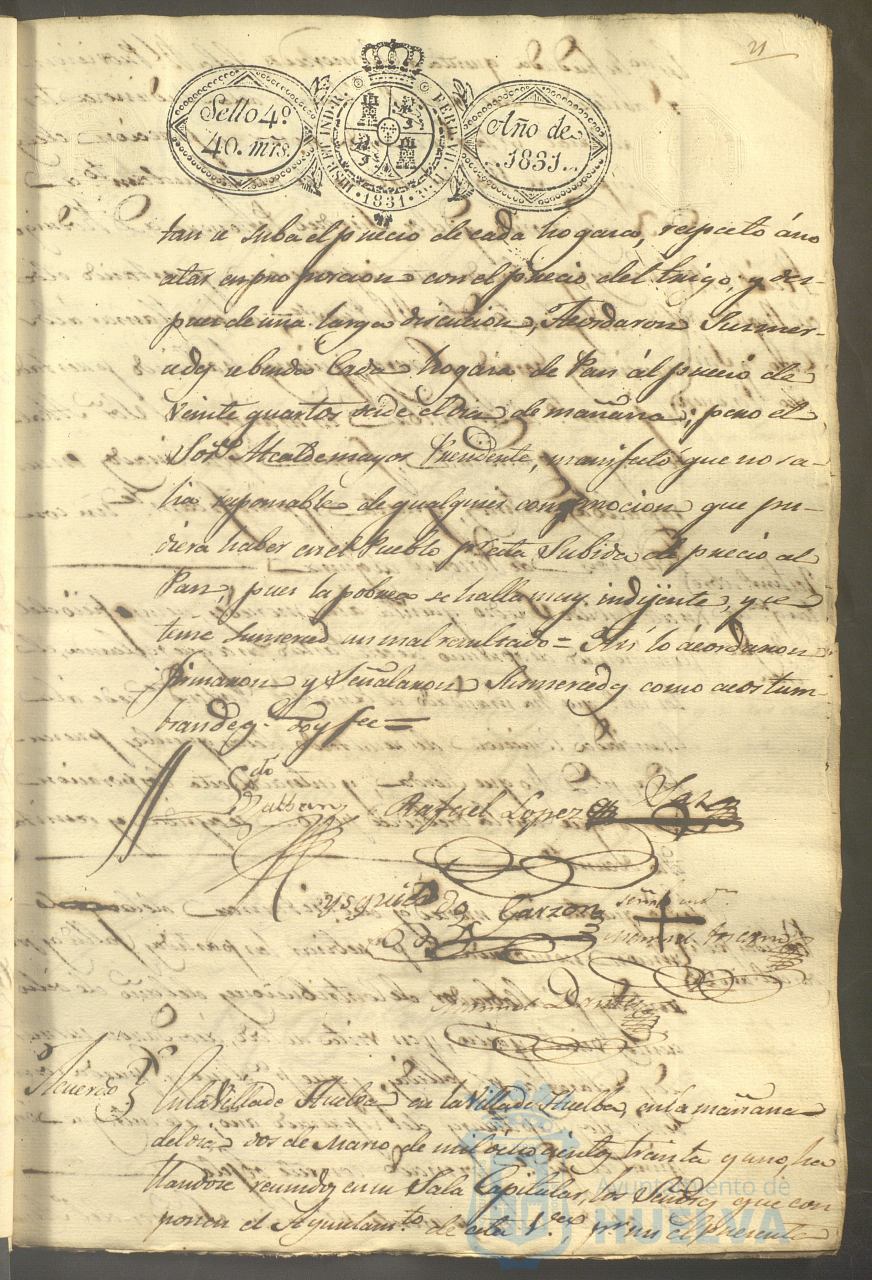 21
Sello 4º
40. mrs.
HISP. ET IND. R.
FERD. VII
1831
Año de
1831
tan a suba el precio de cada hogaza, respecto á no
estar en proporcion con el precio del trigo; y des-
pues de una larga discucion, Acordaron Sumer-
cedes se benda Cada hogaza de Pan ál precio de
veinte quartos desde el dia de mañana; pero el
Sor. Alcalde mayor Presidente, manifesto que no sa-
lia responsable de qualquier conmocion que pu-
diera haber en el Pueblo pr. esta Subida de precio al
Pan, pues la pobreza se halla muy indijente, y se
teme sumerced un mal resultado = Asi lo ácordaron
firmaron y Señalaron Sumercedes como acostum-
bran de q. doy fee =
Rafael Lopez
Garzon
Señal
Manuel
Acuerdo
En la Villa de Huelba en la Villa de Huelba, en la mañana
del dia dos de Marzo de mil ochocientos treinta y uno ha
llandose reunidos en su Sala Capitular, los Señores que com
ponen el Ayuntamto. de esta Va. pr. mi el Presente
Ayuntamiento de
HUELVA